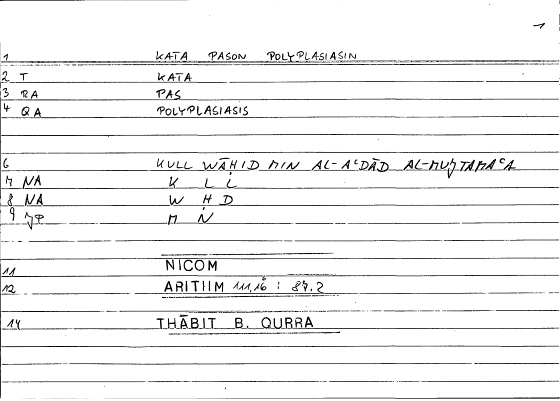 1
1 KATA PASON POLYPLASIASIN
2 T KATA
3 RA PAS
4 QA POLYPLASIASIS
6 KULL WĀḤID MIN AL-AʿDĀD AL-MUǧTAMAʿA
7 NA K L L
8 NA W Ḥ D
9 ǧP M N
11 NICOM
12 ARITIIM 111,16 : 87.2
14 THĀBIT B. QURRA